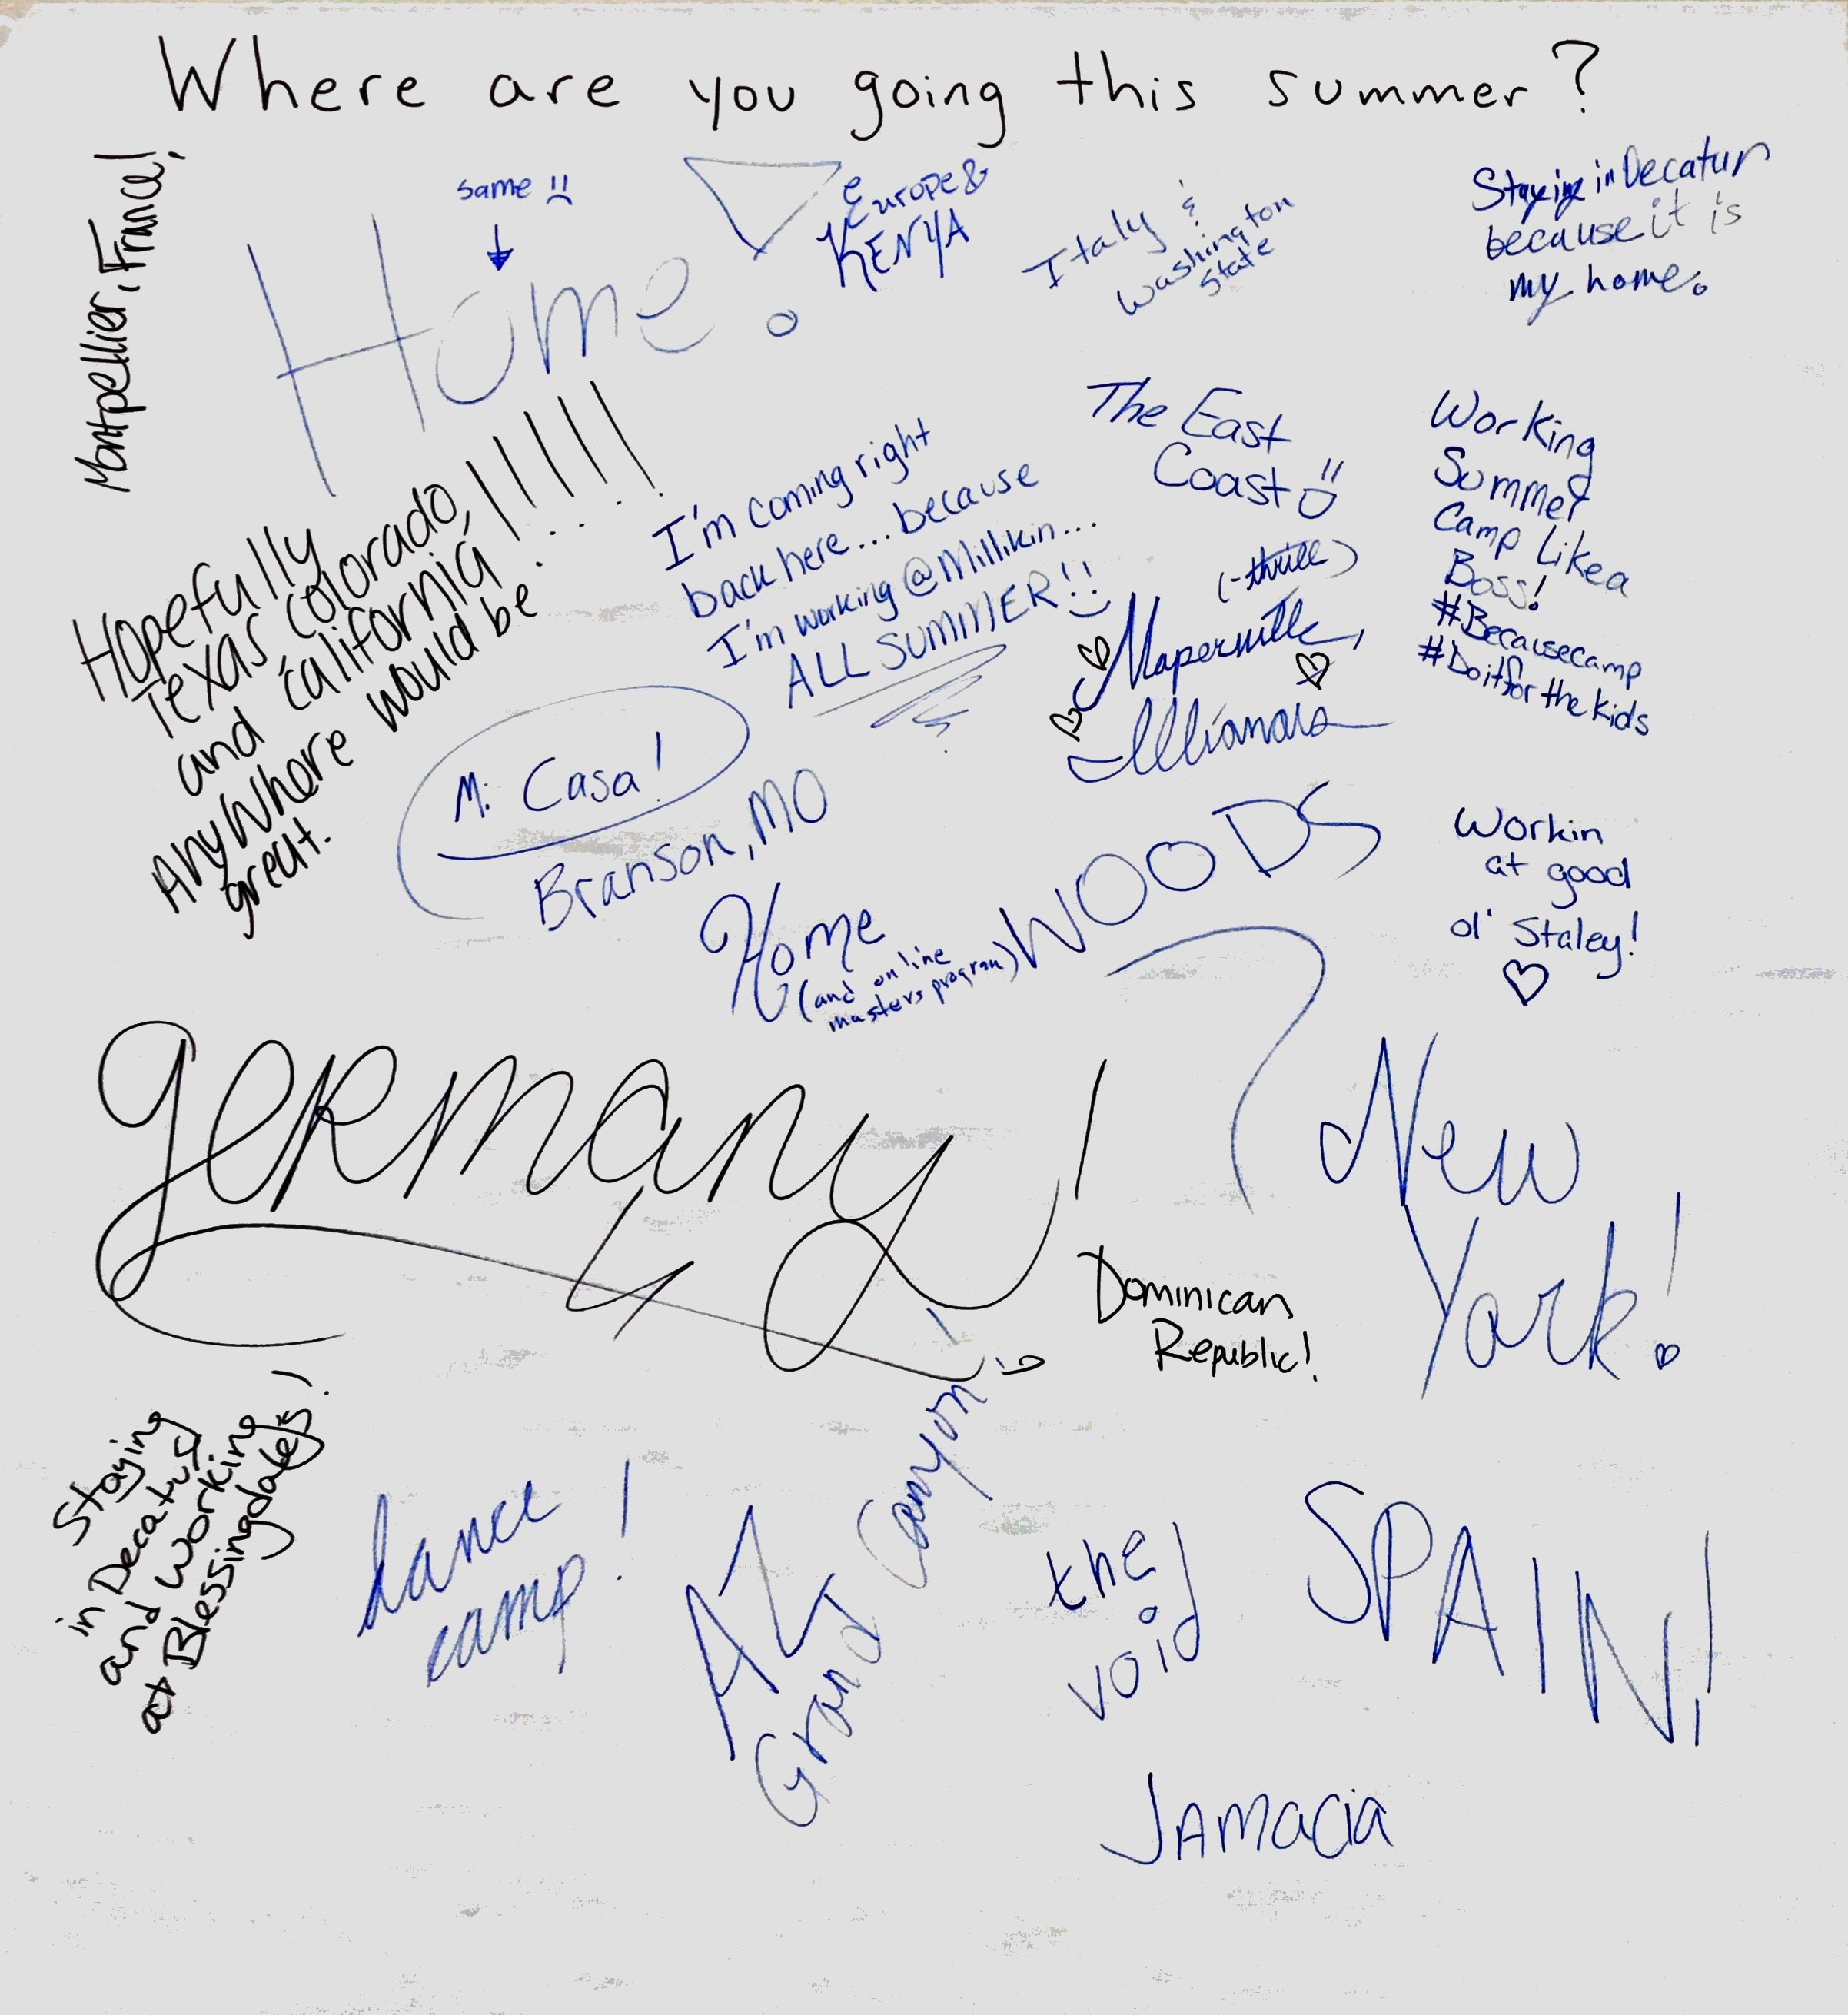 Where are you going this summer?
Montpellier, France!
same
Home!
Europe &
KENYA
Italy &
Washington
State
Staying in Decatur
because it is
my home.
Hopefully
Texas, Colorado,
and California!!!!!!
AnyWhere would be
great.
I'm coming right
back here... because
I'm working @Millikin...
ALL SUMMER!!
The East
Coast
(-thrill)
Naperville,
Working
Summer
Camp Like a
Boss!
#Becausecamp
#Doitfor the kids
Mi Casa!
Branson, MO
Home
(and online
masters program)
WOODS
Workin
at good
ol' Staley!
Germany!
New
York!
Dominican
Republic!
Staying
in Decatur
and working
at Blessingdales!
dance
camp!
AZ
Grand Canyon!
the
void
SPAIN!
JAMACIA